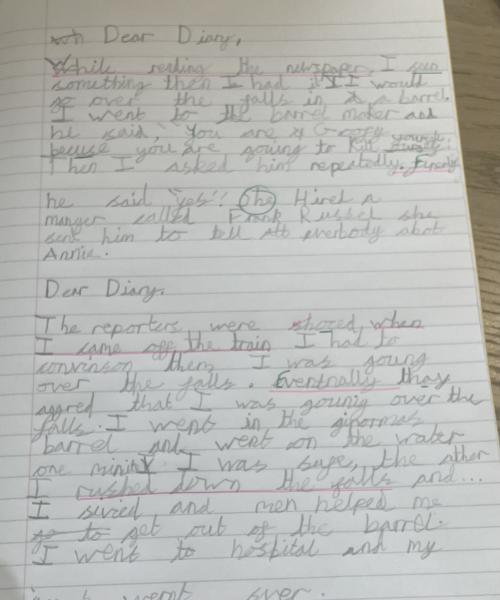 Dear Diary,
While reading the newspaper, I seen
something then I had it! I would
go over the falls in a barrel.
I went to the barrel maker and
he said, "You are crazy
becuse you are gouing to kill yourself!
Then I asked him repeatedly. Finerly
he said "yes"! She Hired a
manger called Frank Russel she
sent him to tell all everbody abot
Annie.
Dear Diary,
The reporters were shozed, when
I came off the train I had to
convinson them I was goung
over the falls. Eventrally thay
aggred that I was gouing over the
falls. I went in the ginormas
barrel and went on the water
one minit I was sage, the other
I rushed down the falls and...
I sived and men helped me
go to get out of the barrel.
I went to hospital and my
wernt ever.